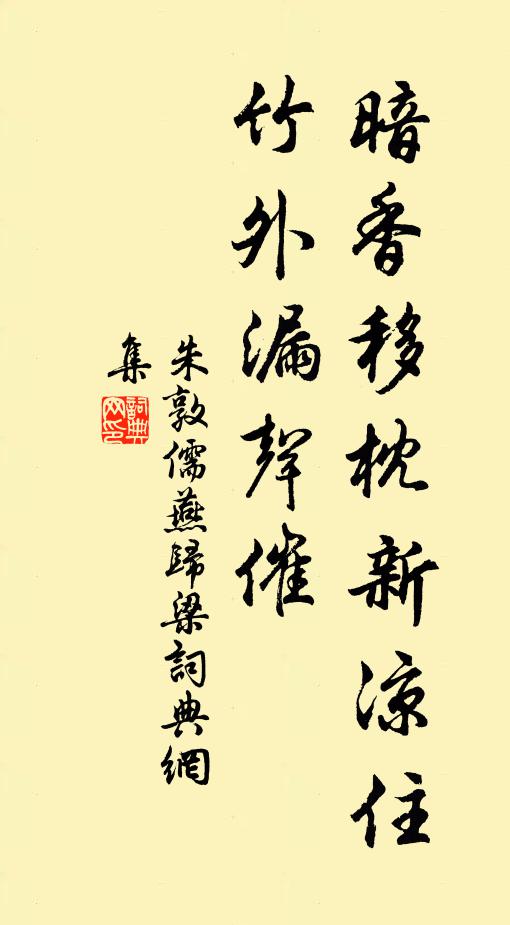 暗香移枕新凉住
竹外漏聲催
朱敦儒燕歸梁詞典網
集
詞典
网印